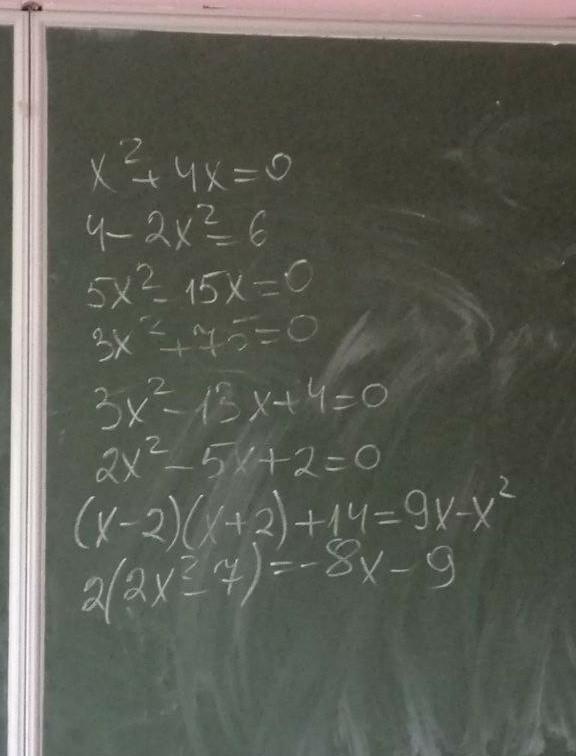 x²+4x=0
4-2x²=6
5x²-15x=0
3x²+75=0
3x²-13x+4=0
2x²-5x+2=0
(x-2)(x+2)+14=9x-x²
2(2x²-7)=-8x-9